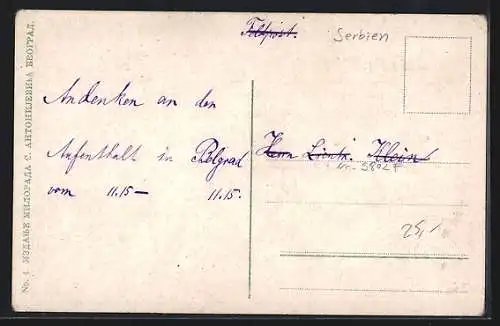 Feldpost.
Serbien
Andenken an den
Aufenthalt in Belgrad
vom 11.15 — 11.15.
Herrn Lientn. Klein
25,-
No. 4 ИЗДАЊЕ МИЛОРАДА С. АНТОНИЈЕВИЋА БЕОГРАД.